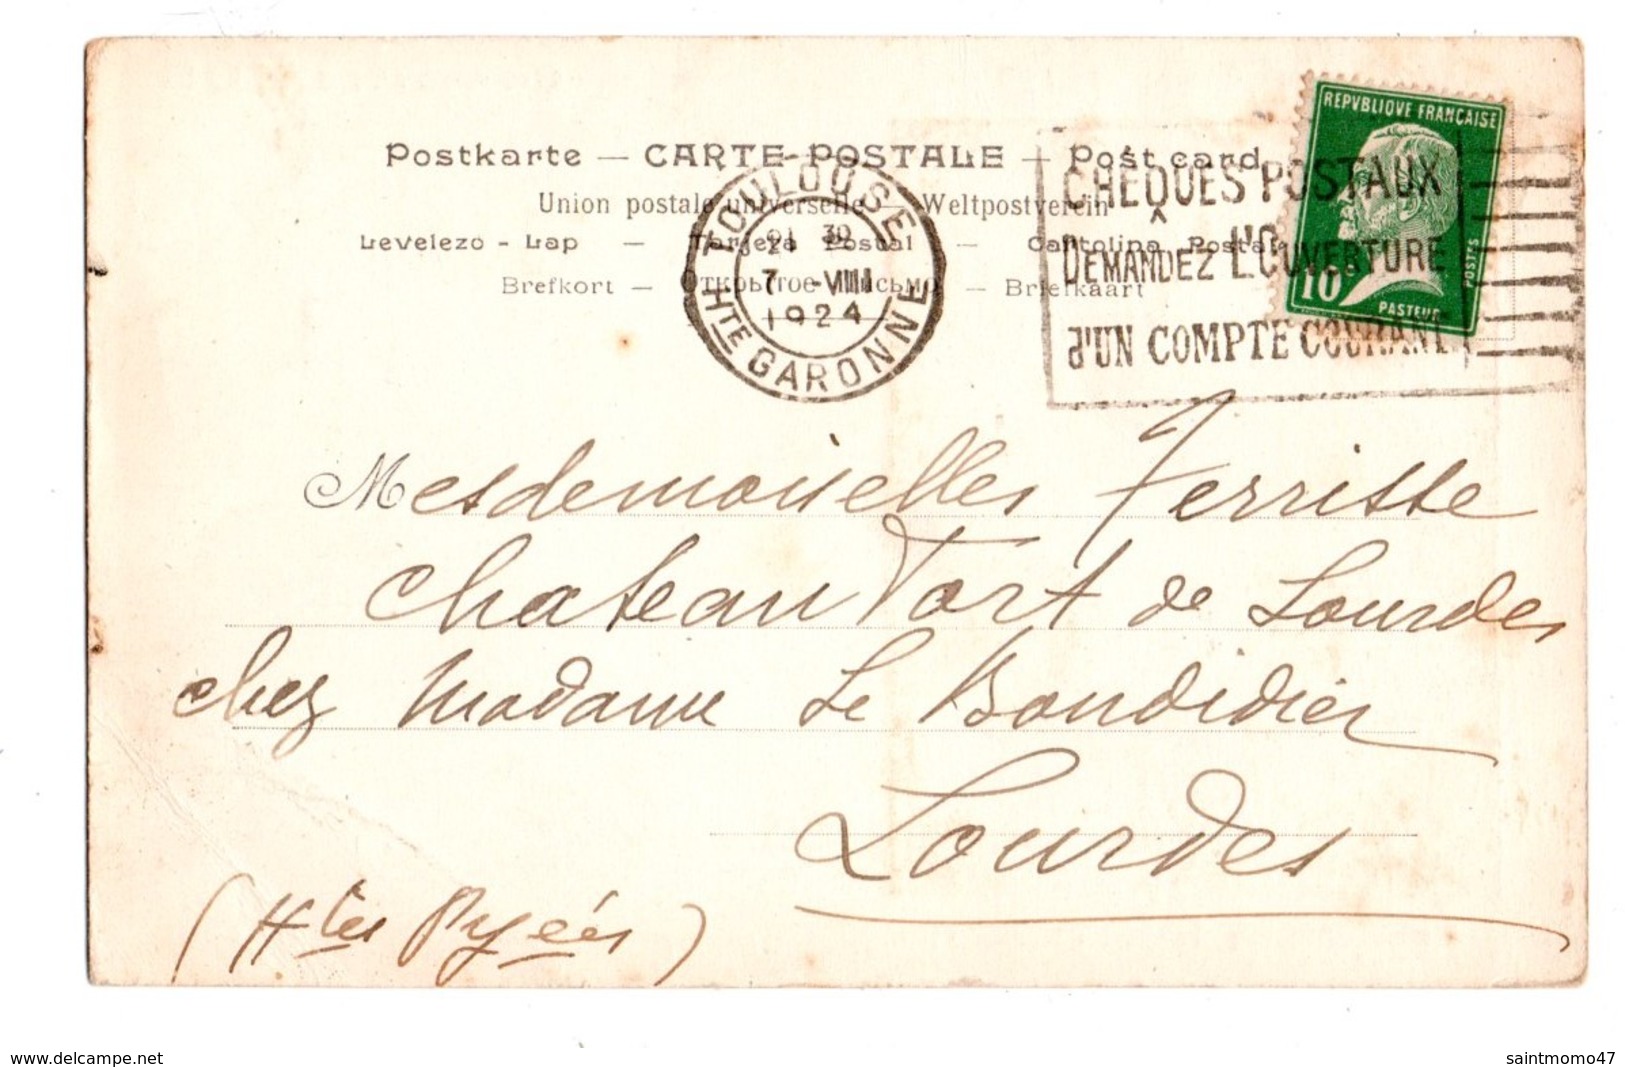 Postkarte — CARTE-POSTALE — Post card
Union postale universelle — Weltpostverein
Levelezo-Lap — Tarjeta Postal — Cartolina Postale
Brefkort — Открытое письмо — Briefkaart
TOULOUSE
21 30
7 -VIII
1924
HTE GARONNE
CHÈQUES POSTAUX
DEMANDEZ L'OUVERTURE
d'UN COMPTE COURANT
REPVBLIQVE FRANÇAISE
10c
POSTES
PASTEUR
Mesdemoiselles Ferriste
Chateau Fort de Lourdes
chez Madame Le Bondidier
Lourdes
(Htes Pyées)
www.delcampe.net
saintmomo47